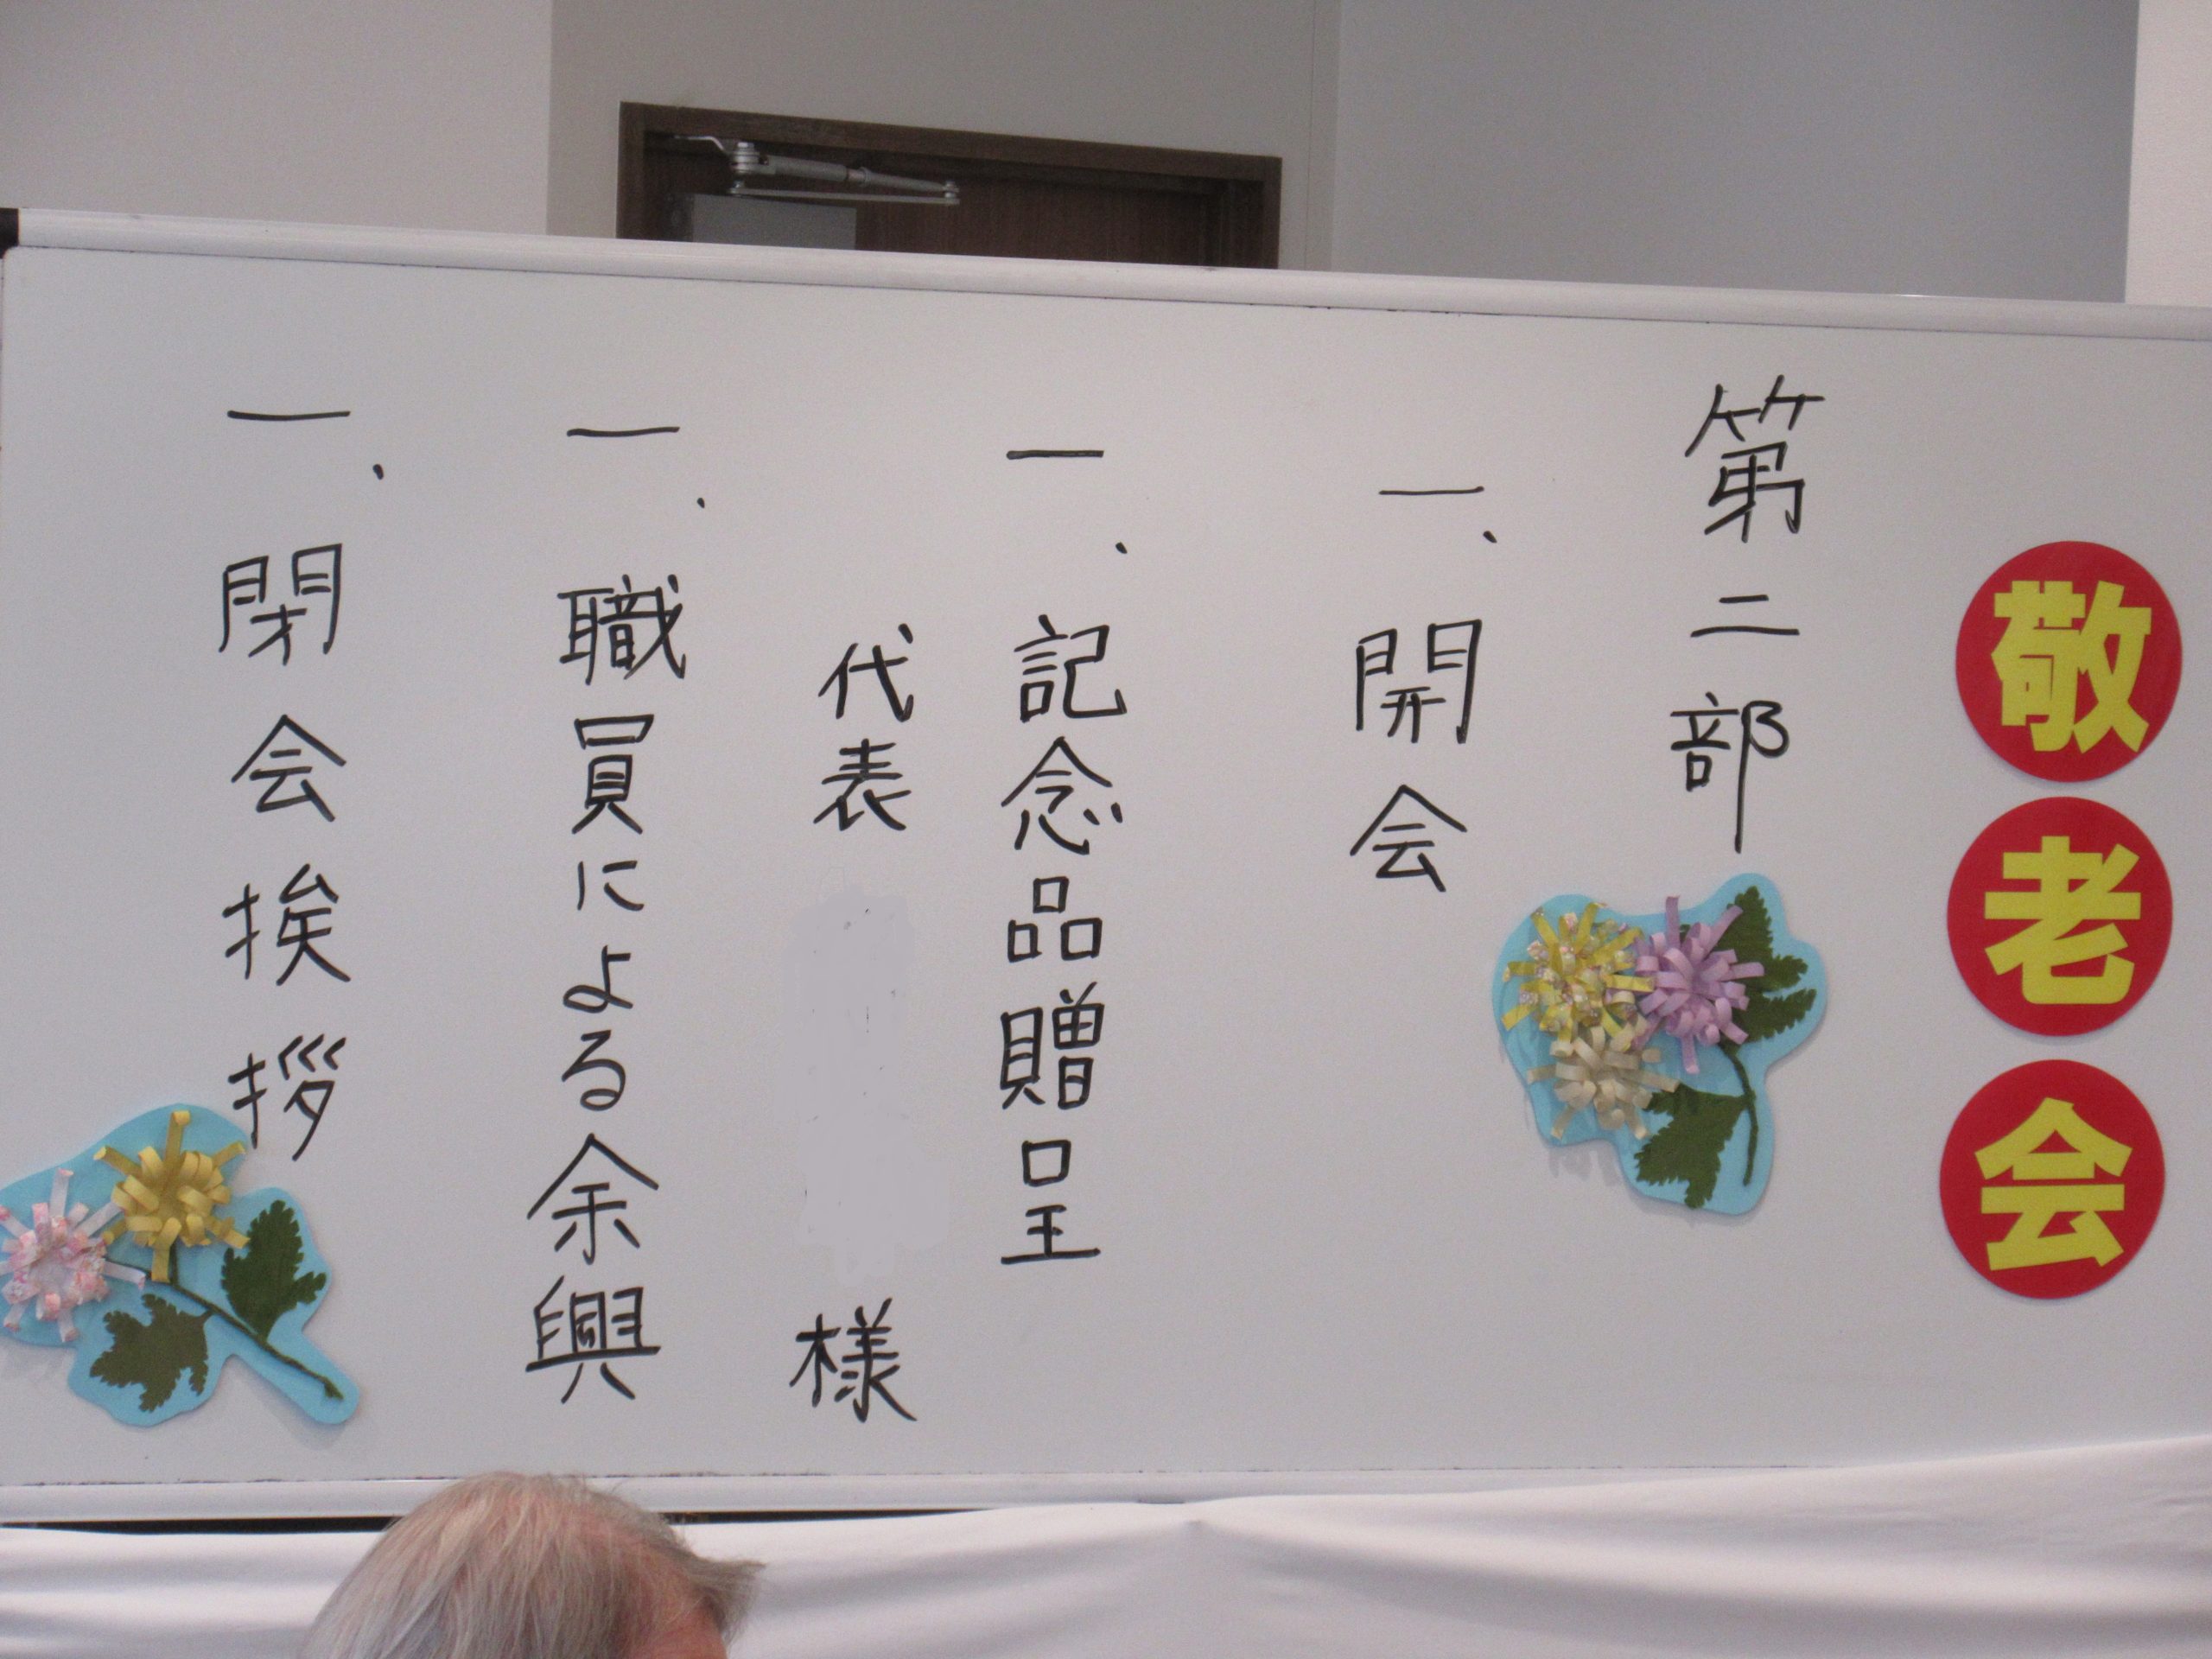 敬老会
第二部
一、開会
一、記念品贈呈
代表 様
一、職員による余興
一、閉会挨拶